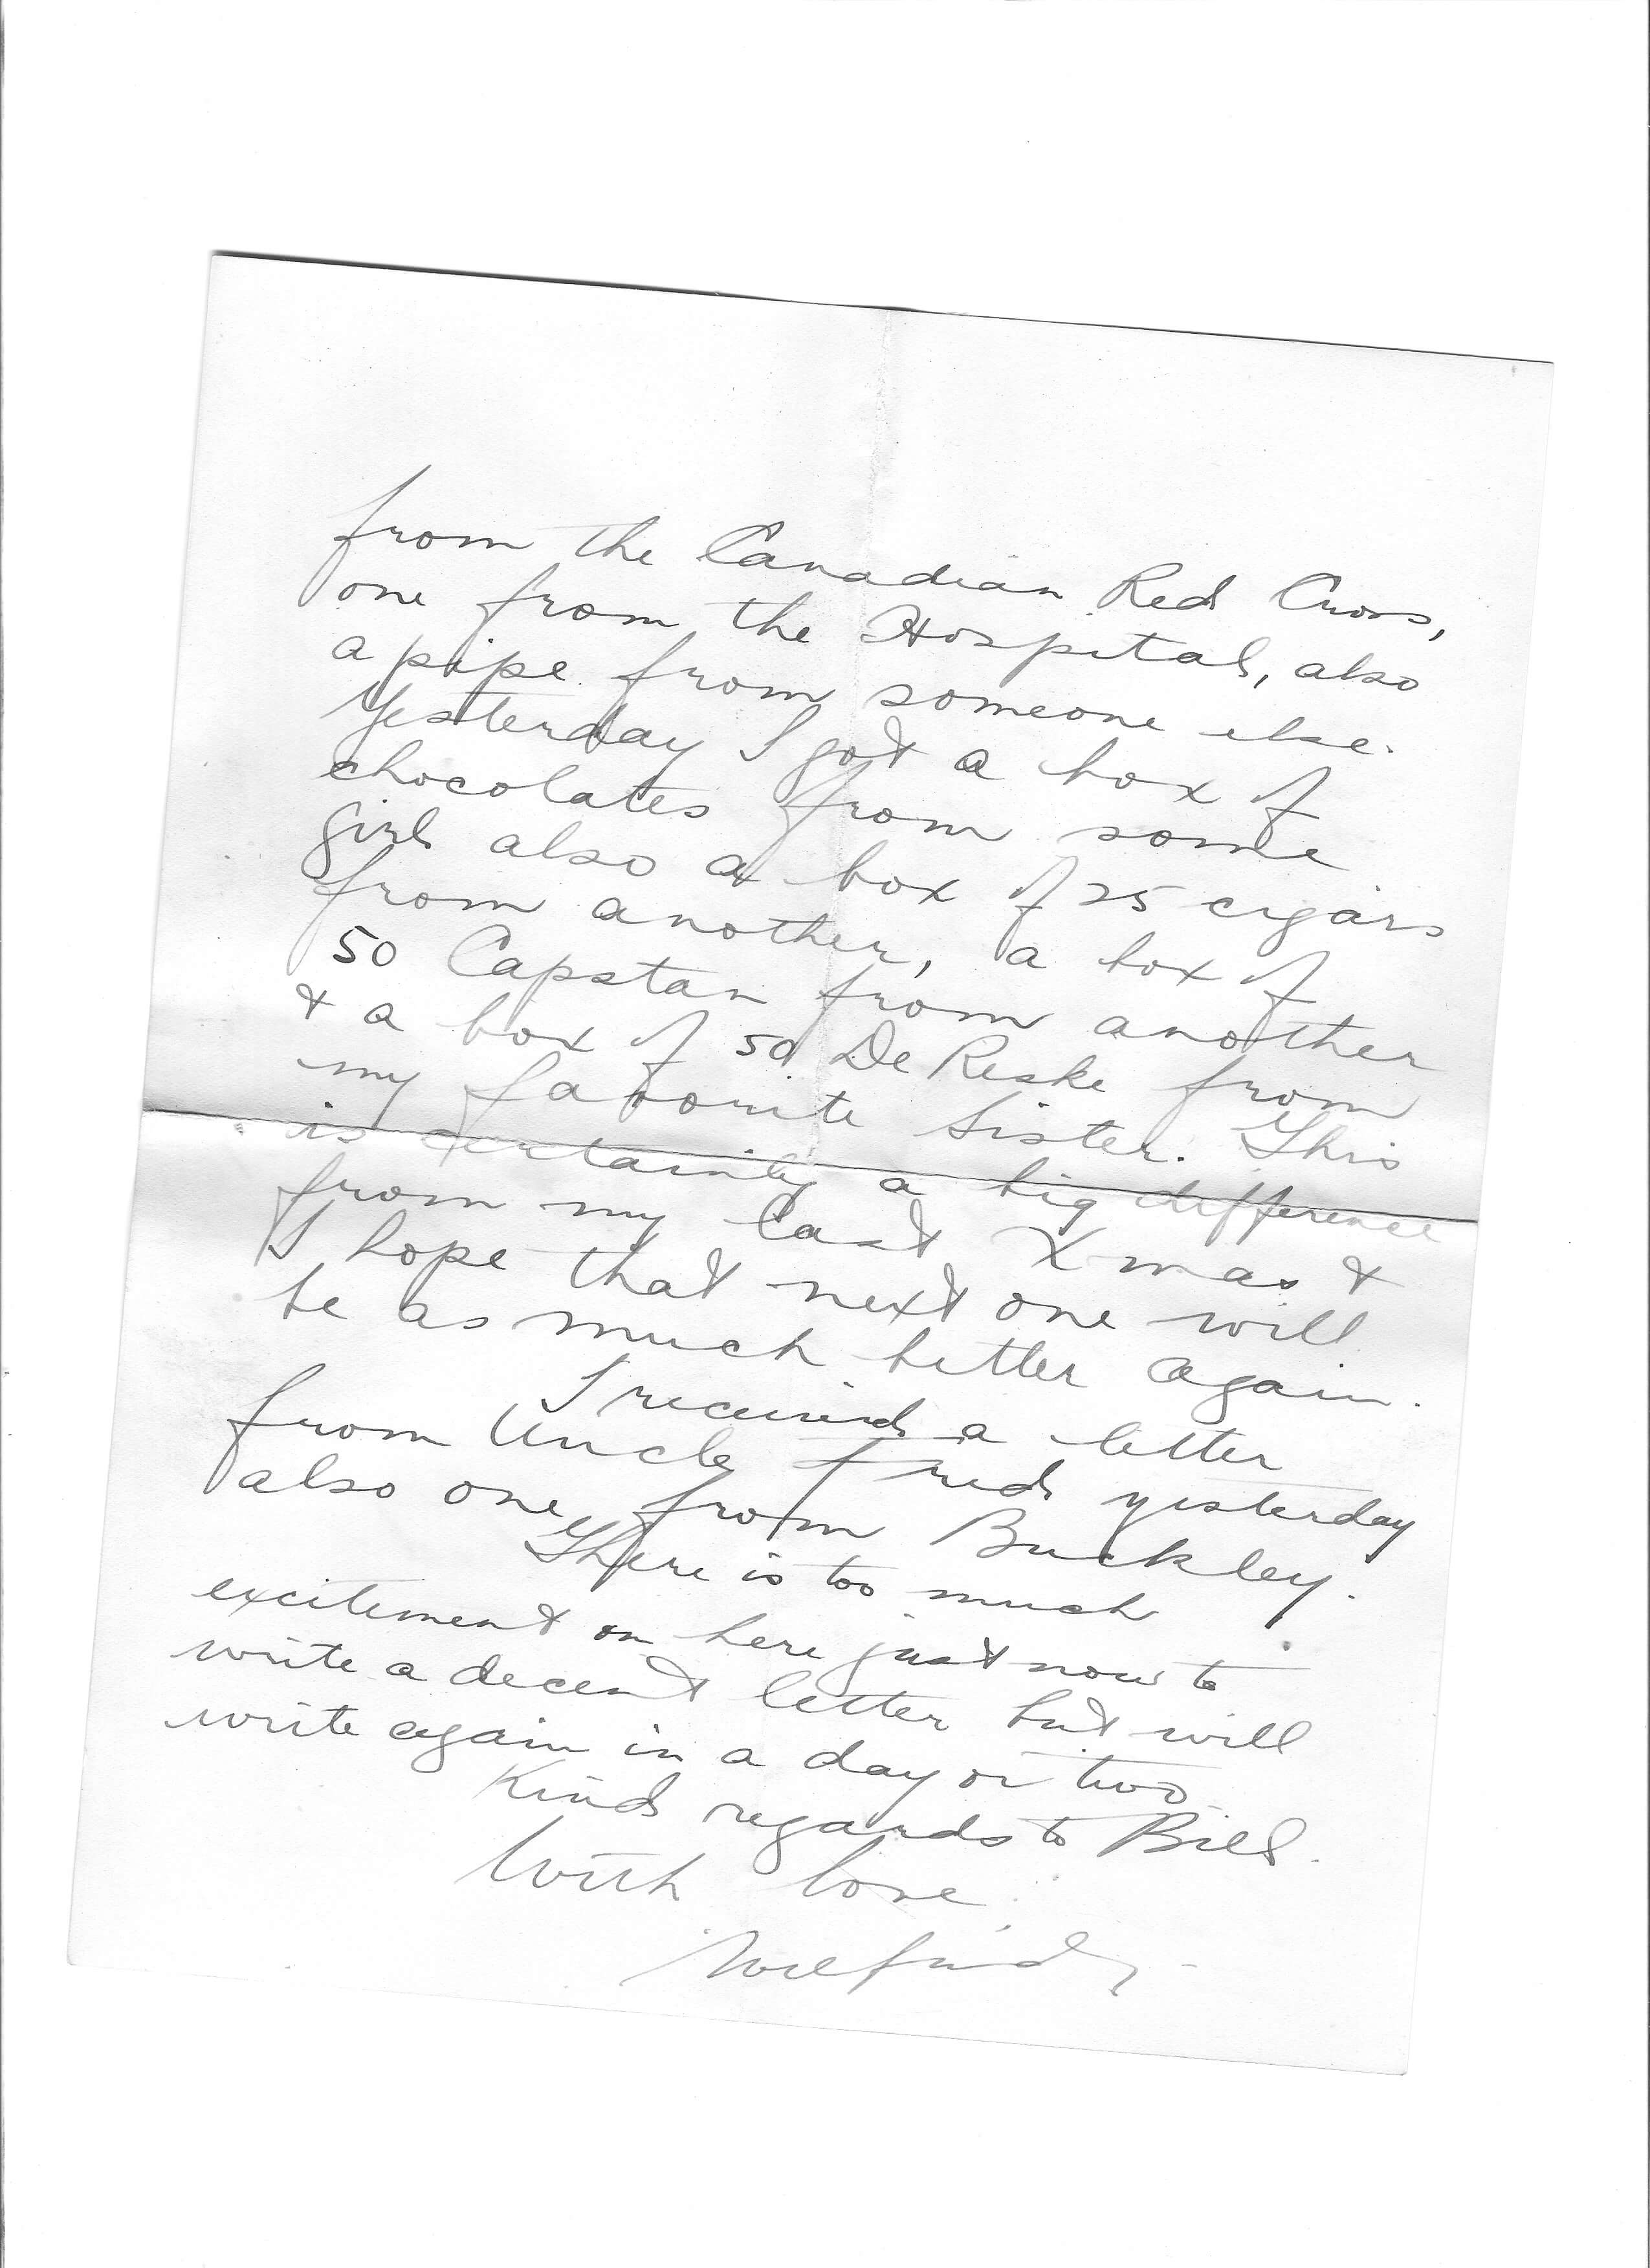 from the Canadian Red Cross,
one from the Hospital, also
a pipe from someone else.
Yesterday I got a box of
chocolates from some
girl also a box of 25 cigars
from another, a box of
50 Capstan from another
& a box of 50 De Reske from
my favorite Sister. This
is certainly a big difference
from my last Xmas &
I hope that next one will
be as much better again.
I received a letter
from Uncle Fred yesterday
also one from Buckley.
There is too much
excitement on here just now to
write a decent letter but will
write again in a day or two
Kind regards to Bill.
With love,
Wilfrid.